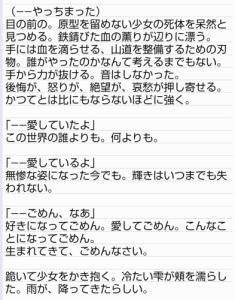 （――やっちまった）
目の前の。原型を留めない少女の死体を呆然と
見つめる。鉄錆びた血の薫りが辺りに漂う。
手には血を滴らせる、山道を整備するための刃
物。誰がやったのかなんて考えるまでもない。
手から力が抜ける。音はしなかった。
後悔が、怒りが、絶望が、哀愁が押し寄せる。
かつてとは比にもならないほどに強く。

「――愛していたよ」
この世界の誰よりも。何よりも。

「――愛しているよ」
無惨な姿になった今でも。輝きはいつまでも失
われない。

「――ごめん、なあ」
好きになってごめん。愛してごめん。こんなこ
とになってごめん。
生まれてきて、ごめんなさい。

跪いて少女をかき抱く。冷たい雫が頬を濡らし
た。雨が、降ってきたらしい。